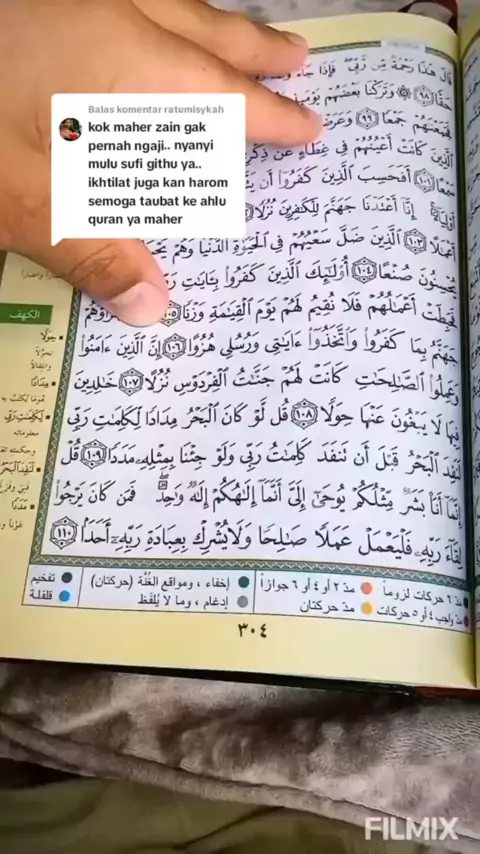 قَالَ هَٰذَا رَحْمَةٌ مِّن رَّبِّي ۖ فَإِذَا جَاءَ
حَقًّا ﴿٩٨﴾ ۞ وَتَرَكْنَا بَعْضَهُمْ يَوْمَئِذٍ
فَجَمَعْنَاهُمْ جَمْعًا ﴿٩٩﴾ وَعَرَضْنَا
الَّذِينَ كَانَتْ أَعْيُنُهُمْ فِي غِطَاءٍ عَن ذِكْرِي
سَمْعًا ﴿١٠١﴾ أَفَحَسِبَ الَّذِينَ كَفَرُوا أَن
أَوْلِيَاءَ ۚ إِنَّا أَعْتَدْنَا جَهَنَّمَ لِلْكَافِرِينَ نُزُلًا
أَعْمَالًا ﴿١٠٣﴾ الَّذِينَ ضَلَّ سَعْيُهُمْ فِي الْحَيَاةِ الدُّنْيَا وَهُمْ
يُحْسِنُونَ صُنْعًا ﴿١٠٤﴾ أُولَٰئِكَ الَّذِينَ كَفَرُوا بِآيَاتِ
فَحَبِطَتْ أَعْمَالُهُمْ فَلَا نُقِيمُ لَهُمْ يَوْمَ الْقِيَامَةِ وَزْنًا ﴿١٠٥﴾
جَهَنَّمُ بِمَا كَفَرُوا وَاتَّخَذُوا آيَاتِي وَرُسُلِي هُزُوًا ﴿١٠٦﴾ إِنَّ الَّذِينَ آمَنُوا
وَعَمِلُوا الصَّالِحَاتِ كَانَتْ لَهُمْ جَنَّاتُ الْفِرْدَوْسِ نُزُلًا ﴿١٠٧﴾ خَالِدِينَ
فِيهَا لَا يَبْغُونَ عَنْهَا حِوَلًا ﴿١٠٨﴾ قُل لَّوْ كَانَ الْبَحْرُ مِدَادًا لِّكَلِمَاتِ رَبِّي
لَنَفِدَ الْبَحْرُ قَبْلَ أَن تَنفَدَ كَلِمَاتُ رَبِّي وَلَوْ جِئْنَا بِمِثْلِهِ مَدَدًا ﴿١٠٩﴾ قُلْ
إِنَّمَا أَنَا بَشَرٌ مِّثْلُكُمْ يُوحَىٰ إِلَيَّ أَنَّمَا إِلَٰهُكُمْ إِلَٰهٌ وَاحِدٌ ۖ فَمَن كَانَ يَرْجُو
لِقَاءَ رَبِّهِ فَلْيَعْمَلْ عَمَلًا صَالِحًا وَلَا يُشْرِكْ بِعِبَادَةِ رَبِّهِ أَحَدًا ﴿١١٠﴾
Balas komentar ratumisykah
kok maher zain gak
pernah ngaji.. nyanyi
mulu sufi githu ya..
ikhtilat juga kan harom
semoga taubat ke ahlu
quran ya maher
الكهف
حِوَلًا
مِدَادًا
لِكَلِمَاتِ رَبِّي
لَنَفِدَ الْبَحْرُ
مَدَدًا
مدّ ٦ حركات لزوماً مدّ ٢ أو ٤ أو ٦ جوازاً إخفاء ، ومواقع الغُنَّة (حركتان) تفخيم
مدّ واجب ٤ أو ٥ حركات مدّ حركتان إدغام ، وما لا يُلفَظ قلقلة
٣٠٤
FILMIX